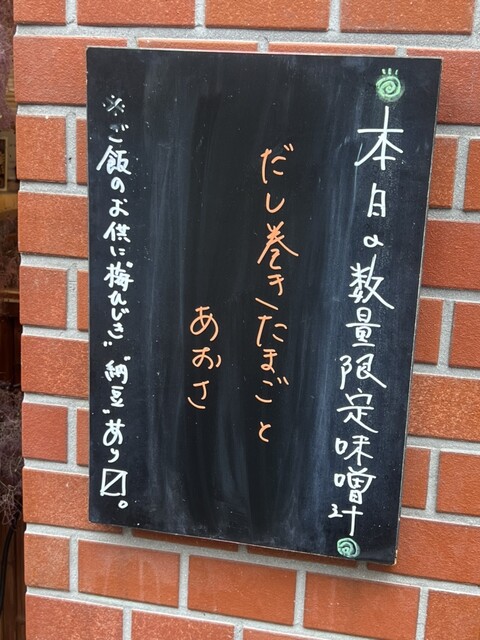 本日の数量限定味噌汁
だし巻きたまごと
あおさ
※ご飯のお供に"梅ひじき""納豆"あり〼。